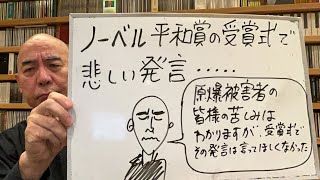 ノーベル平和賞の受賞式で
悲しい発言.....
原爆被害者の
皆様の苦しみは
わかりますが、受賞式で
その発言は言ってほしくなかった